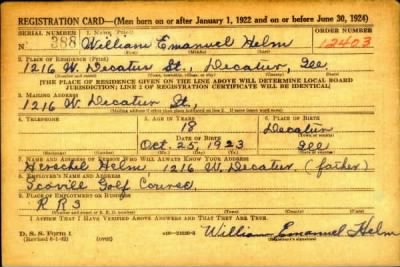 REGISTRATION CARD—(Men born on or after January 1, 1922 and on or before June 30, 1924)
SERIAL NUMBER 1. NAME (Print) ORDER NUMBER
N 388 William Emanuel Helm 12403
2. PLACE OF RESIDENCE (Print)
1216 W. Decatur St., Decatur, Ill
[THE PLACE OF RESIDENCE GIVEN ON THE LINE ABOVE WILL DETERMINE LOCAL BOARD
JURISDICTION; LINE 2 OF REGISTRATION CERTIFICATE WILL BE IDENTICAL]
3. MAILING ADDRESS
1216 W. Decatur St,
4. TELEPHONE 5. AGE IN YEARS 6. PLACE OF BIRTH
18 Decatur
DATE OF BIRTH
Oct. 25, 1923 Ill
7. NAME AND ADDRESS OF PERSON WHO WILL ALWAYS KNOW YOUR ADDRESS
Herschel Helm 1216 W. Decatur, (father)
8. EMPLOYER'S NAME AND ADDRESS
Scovill Golf Course
9. PLACE OF EMPLOYMENT OR BUSINESS
R R 3
I AFFIRM THAT I HAVE VERIFIED ABOVE ANSWERS AND THAT THEY ARE TRUE.
D. S. S. Form 1
(Revised 6-1-42)
William Emanuel Helm